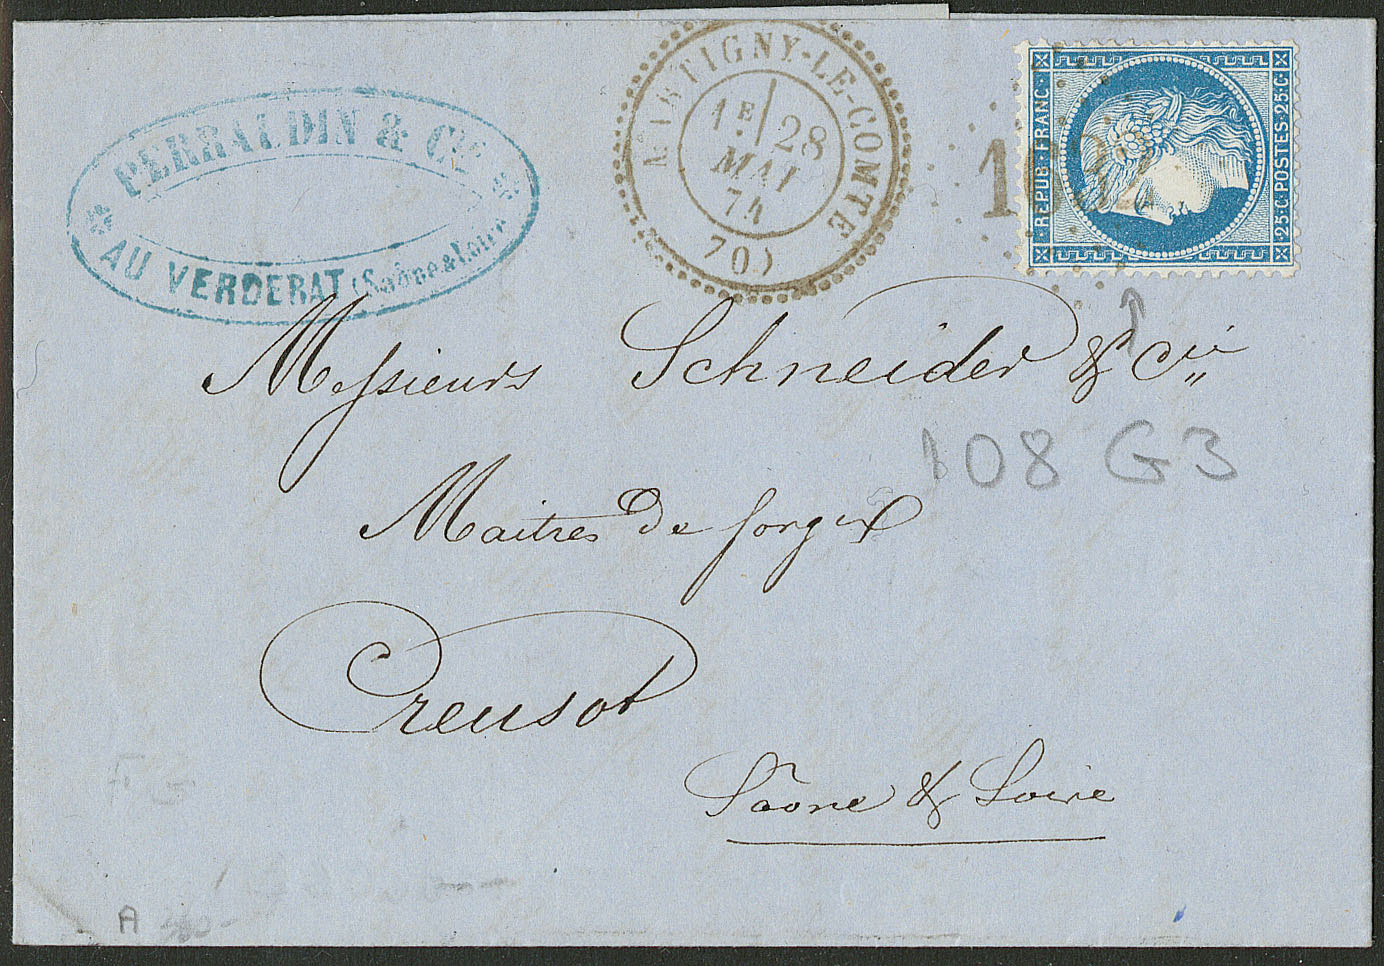 PERRAUDIN & Cie
AU VERDERAT (Saône & Loire)
MARTIGNY-LE-COMTE
1E 28
MAI
74
(70)
REPUB · FRANC ·
25·C·POSTES·25·C·
Messieurs Schneider & Cie
108 G3
Maitres de forges
Creusot
Saone & Loire
A